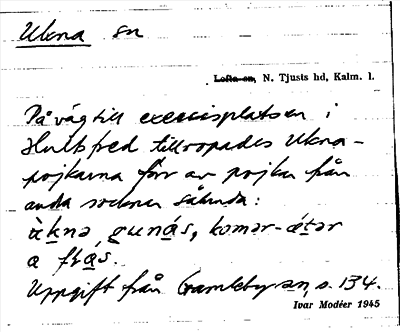 Ukna sn
Lofta sn, N. Tjusts hd, Kalm. l.
På väg till exercisplatsen i
Hultsfred tillropades Ukna-
pojkarna förr av pojkar från
andra socknar sålunda:
ùknə gunás, komər-átər
a frás.
Uppgift från Gamlebyan, s. 134.
Ivar Modéer 1945